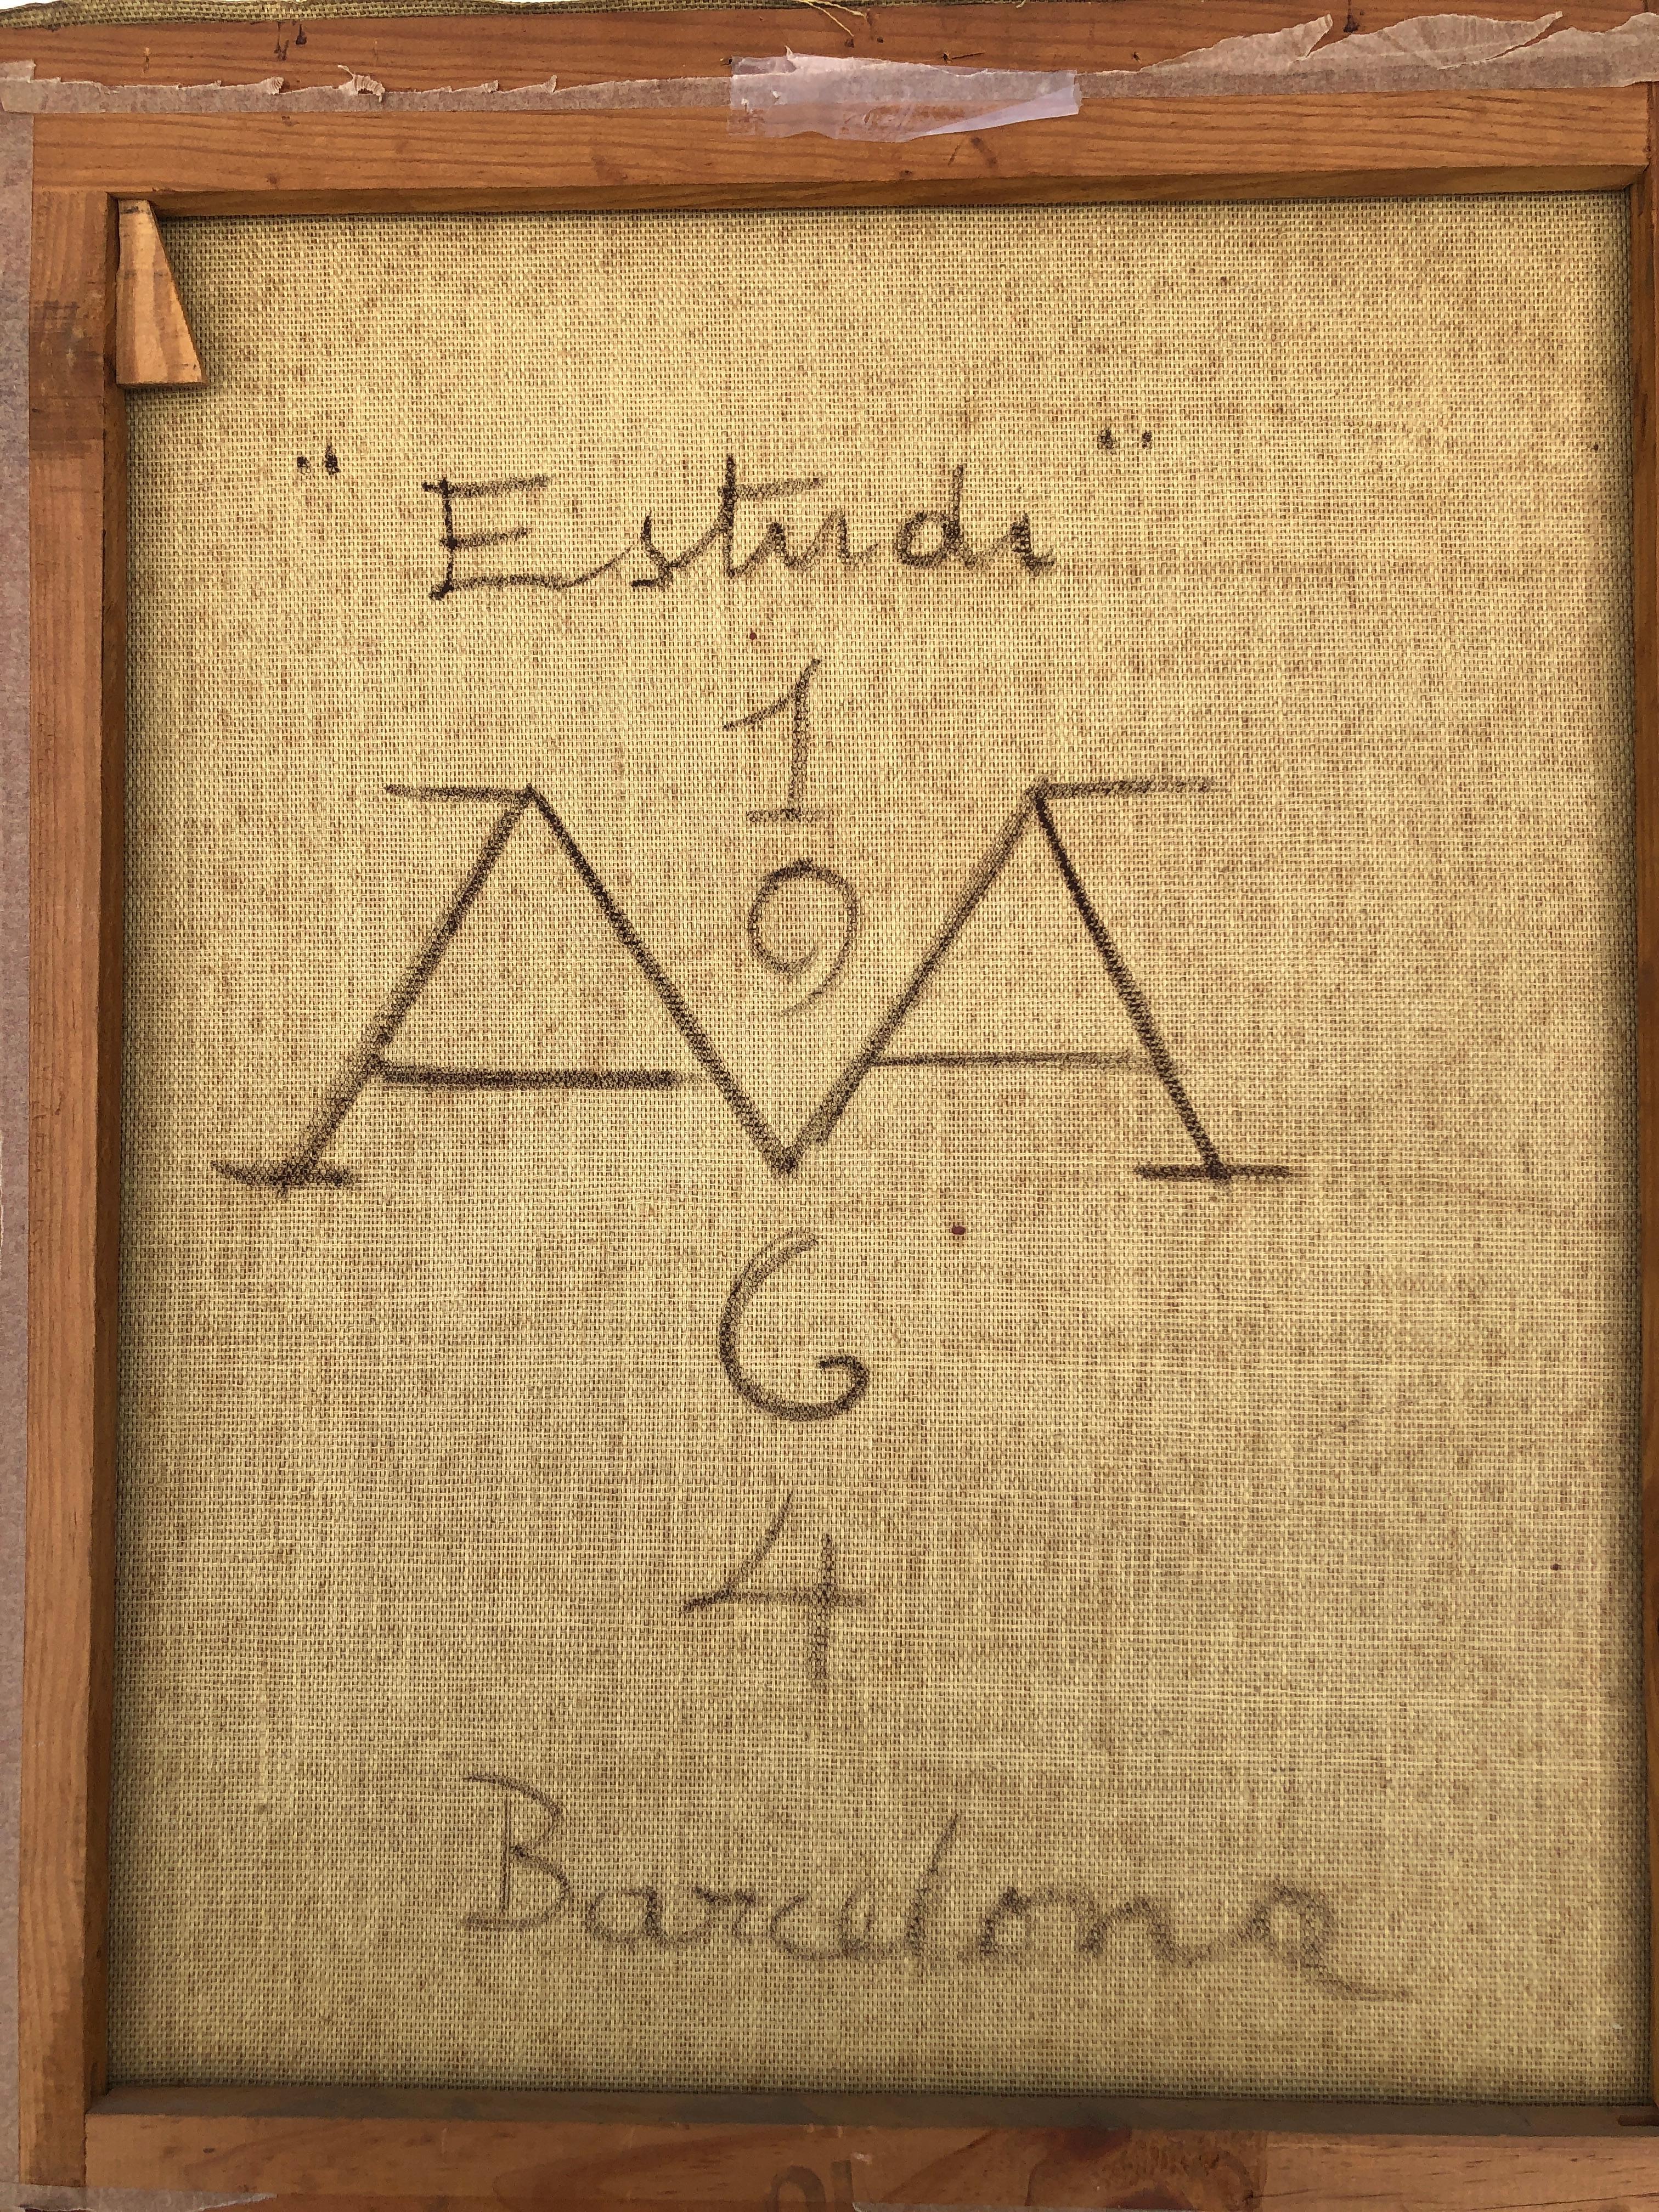 "Estudi"
1
9
AVA
6
4
Barcelona